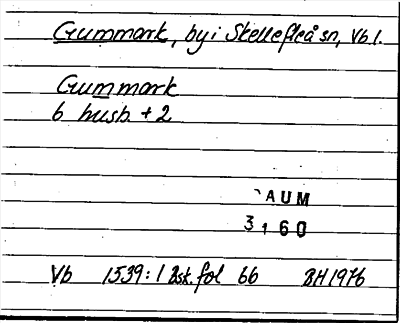 Gummark, by i Skellefteå sn, Vb l.
Gummark
6 husb. + 2
AUM
3160
Vb 1539:1 Bsk. fol 66 BH 1976